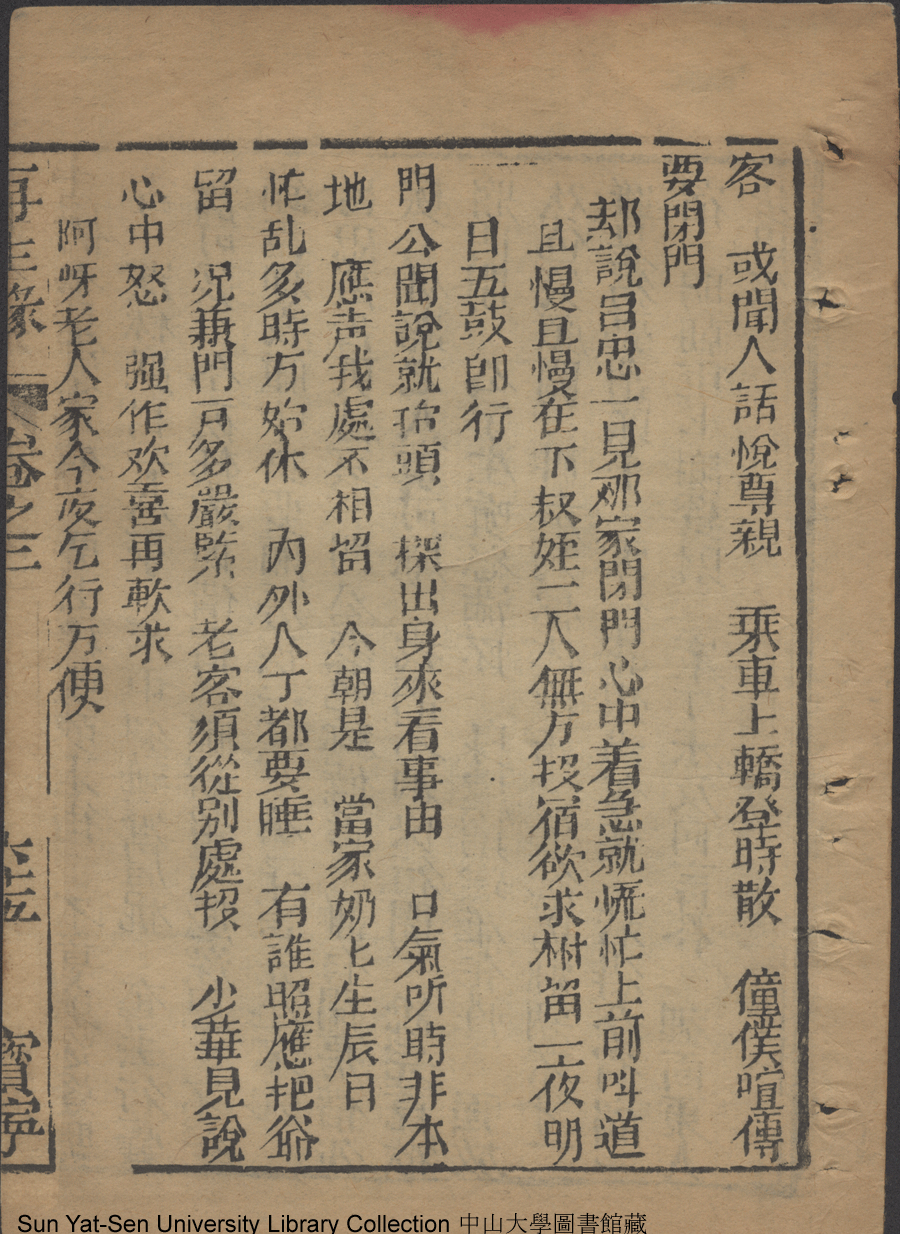 客　或聞人話悅尊親　乘車上轎登時散　僮僕喧傳
要閉門
却說呂忠一見那家閉門心中着急就慌忙上前呌道
且慢且慢在下叔姪二人無方投宿欲求相留一夜明
日五鼓即行
門公聞說就抬頭　探出身來看事由　口氣听時非本
地　應声我處不相留　今朝是　當家奶〻生辰日
忙乱多時方始休　內外人丁都要睡　有誰照應把爺
留　况兼門戶多嚴緊　老客須從別處投　少華見說
心中怒　强作欢喜再軟求
阿呀老人家今夜乞行方便
再生緣　卷之三　六十五　寶寧
Sun Yat-Sen University Library Collection 中山大學圖書館藏